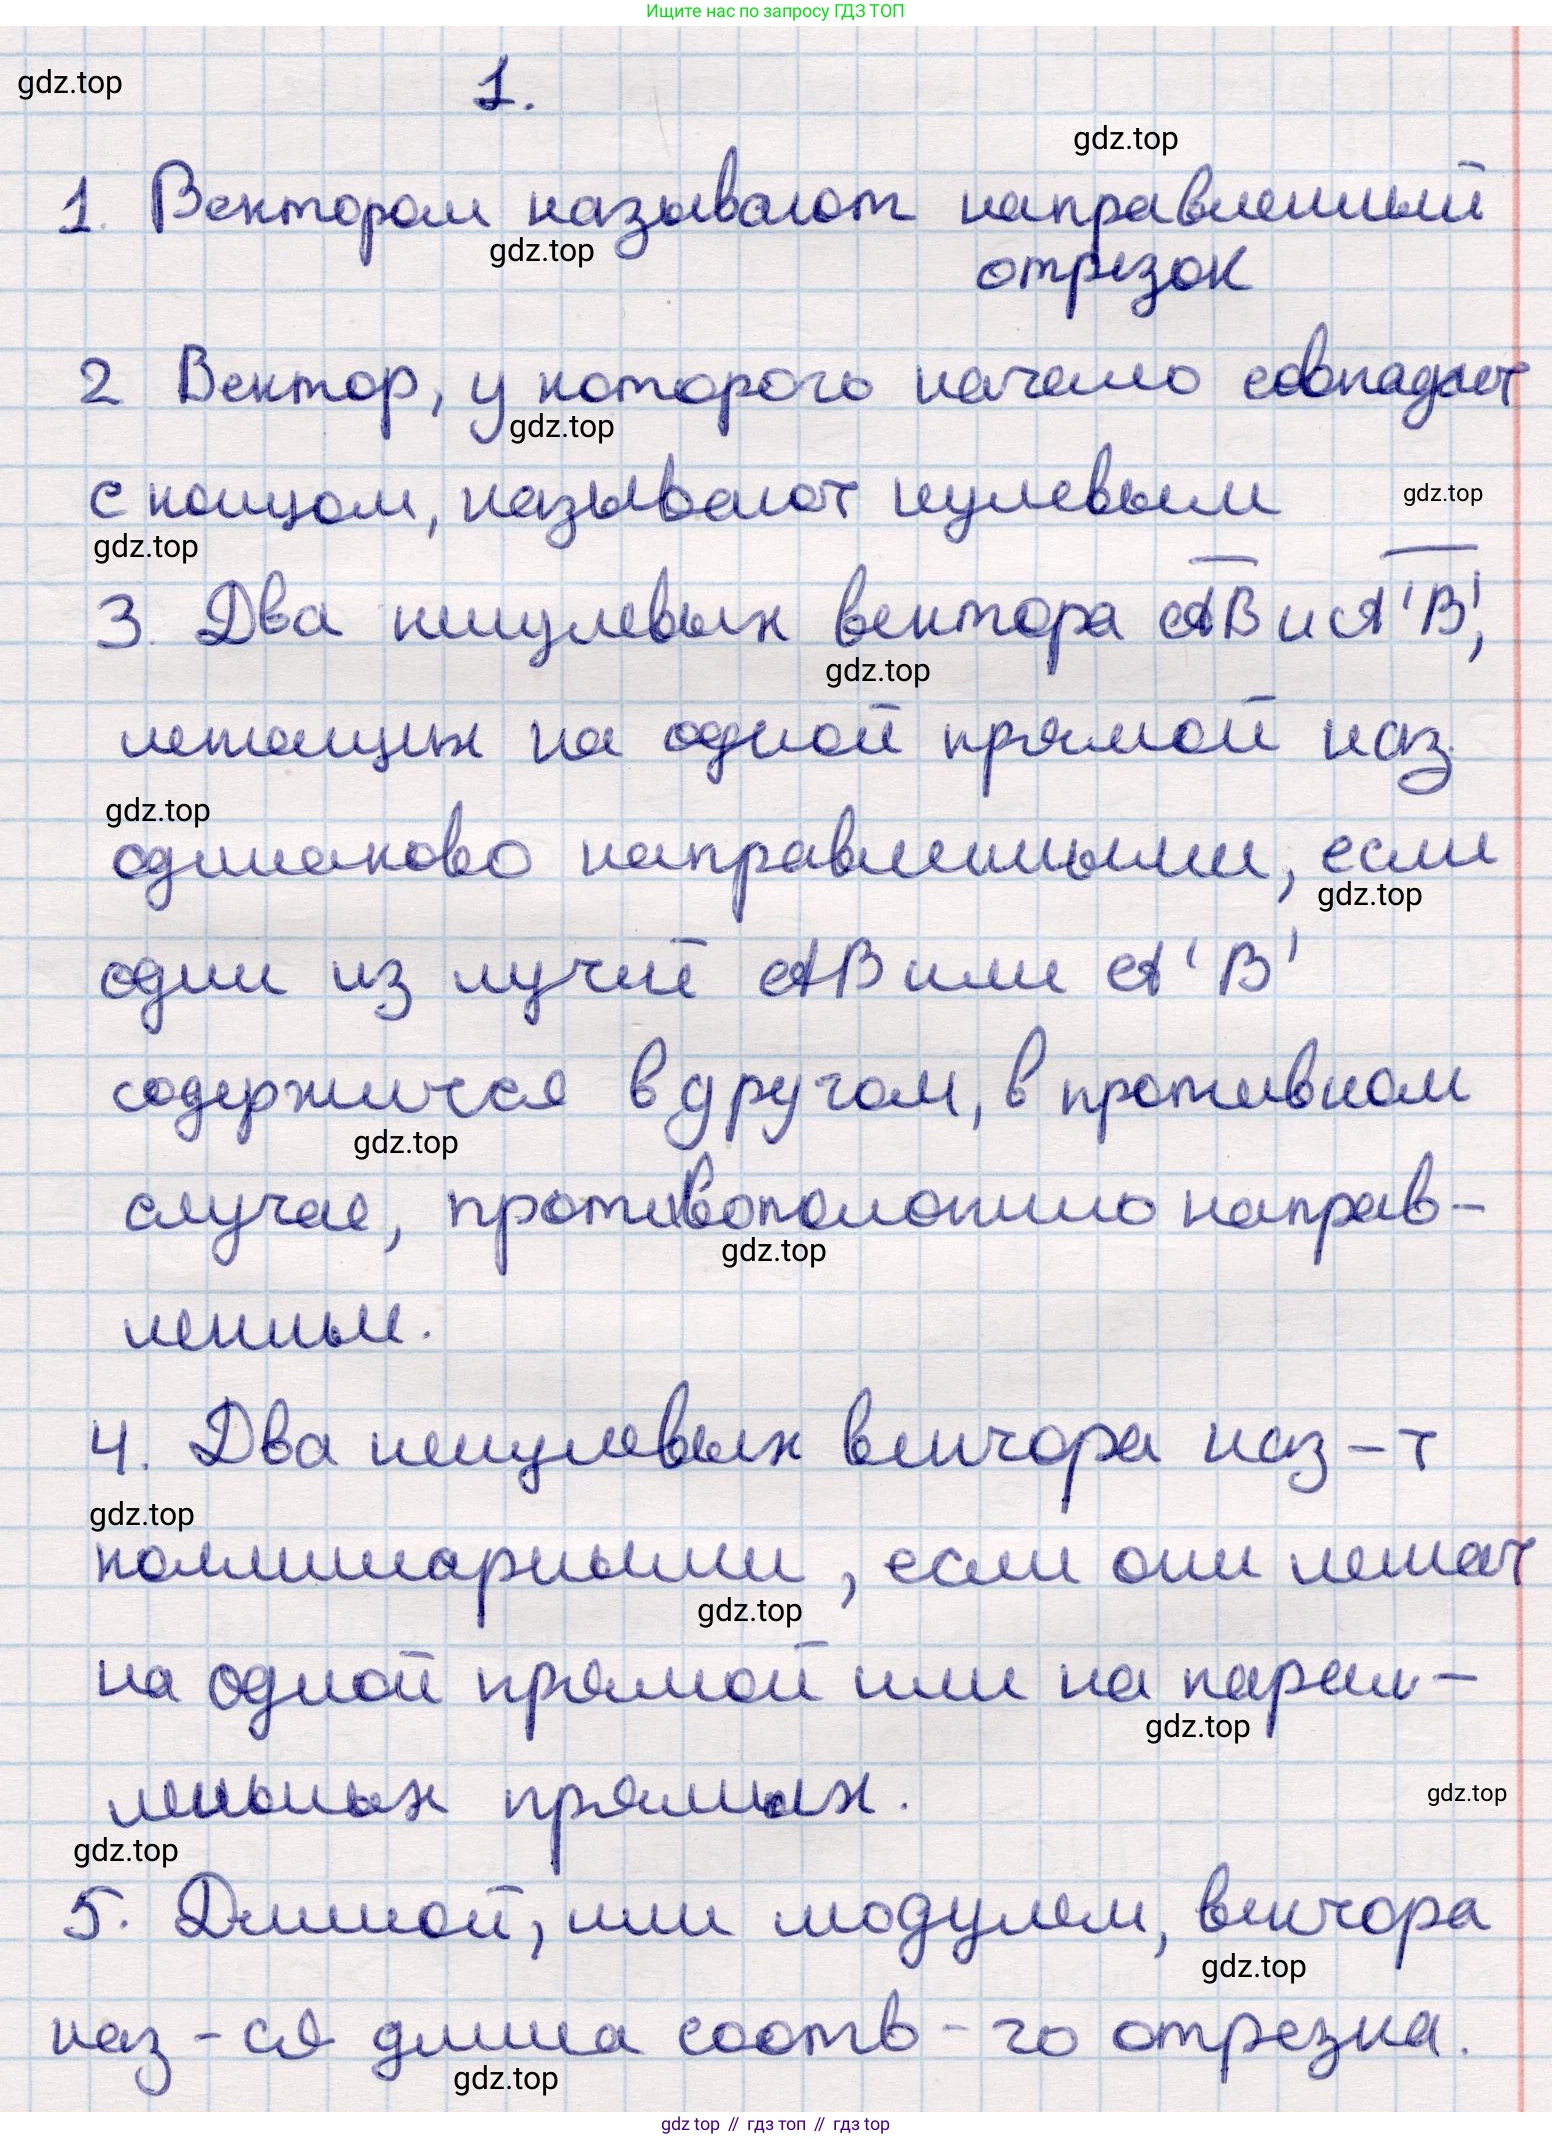 Ищите нас по запросу ГДЗ ТОП
gdz.top
1.
gdz.top
1. Вектором называют направленный
gdz.top
отрезок
2 Вектор, у которого начало совпадает
gdz.top
с концом, называют нулевым
gdz.top
gdz.top
3. Два ненулевых вектора AB и A'B',
gdz.top
лежащих на одной прямой наз.
gdz.top
одинаково направленными, если
gdz.top
один из лучей AB или A'B'
содержится в другом, в противном
gdz.top
случае, противоположно направ-
gdz.top
ленным.
4. Два ненулевых вектора наз-т
gdz.top
коллинарными, если они лежат
gdz.top
на одной прямой или на парал-
gdz.top
лельных прямых.
gdz.top
gdz.top
5. Длиной, или модулем, вектора
gdz.top
наз-ся длина соотв-го отрезка.
gdz.top
gdz top // гдз топ // гдз top